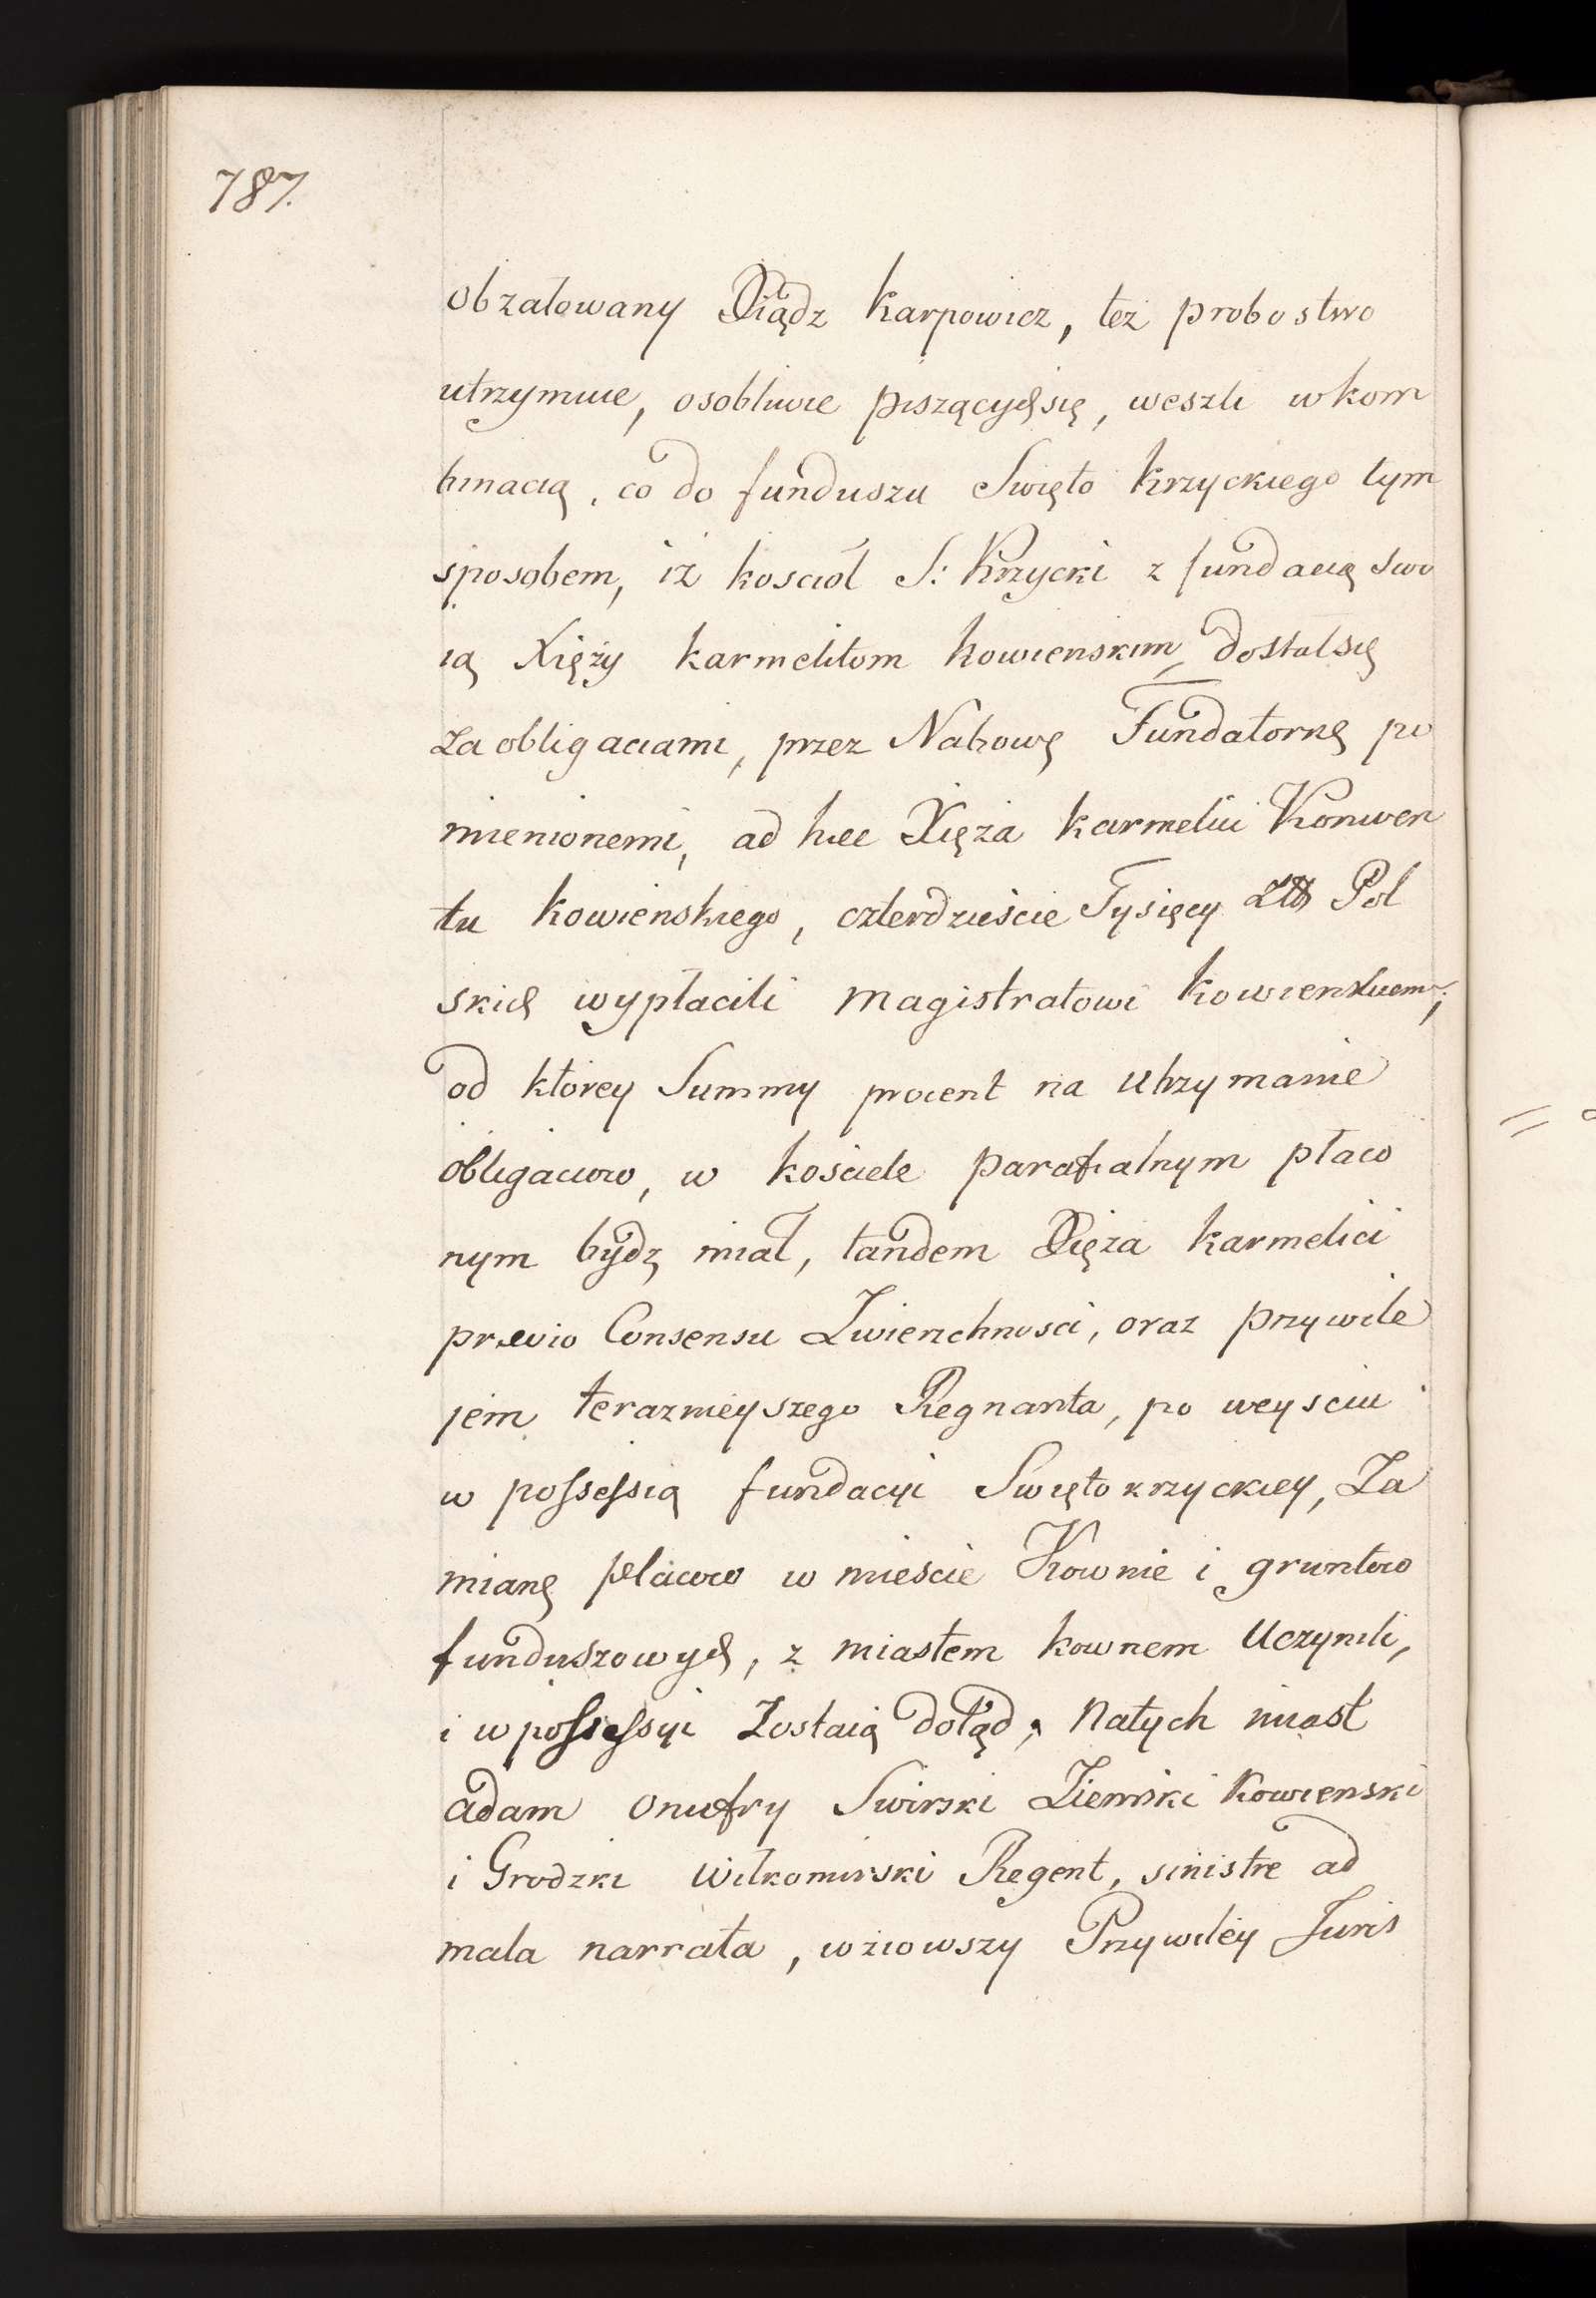 787.
obzałowany Xiądz Karpowicz, też probostwo
utrzymuie, osobliwie piszących się, weszli w kom
binacią, co do funduszu Swięto Krzyckiego tym
sposobem, iż kosciół S: Krzycki z fundacią swo
ią Xięży Karmelitom Kowienskim, dostał się
za obligaciami, przez Nabowę Fundatorkę po
mienionemi, ad hæc Xięża Karmelici Konwen
tu Kowienskiego, czterdzieście Tysięcy Złł Pol
skich wypłacili Magistratowi Kowienskiemu;
od ktorey Summy procent na utrzymanie
obligaciow, w kościele parafialnym płaco
nym bydz miał, tandem Xięża Karmelici
prævio Consensu Zwierzchnosci, oraz przywile
jem teraznieyszego Regnanta, po weysciu
w possessią fundacyi Swiętokrzyckiey, Za
mianę placow w mieście Kownie i gruntow
funduszowych, z miastem Kownem Uczynili,
i w possessyi zostaią dotąd, Natych miast
adam onufry Swirski Ziemski Kowienski
i Grodzki Wiłkomirski Regent, sinistre ad
mala narrata, wziowszy Przywiley Juris